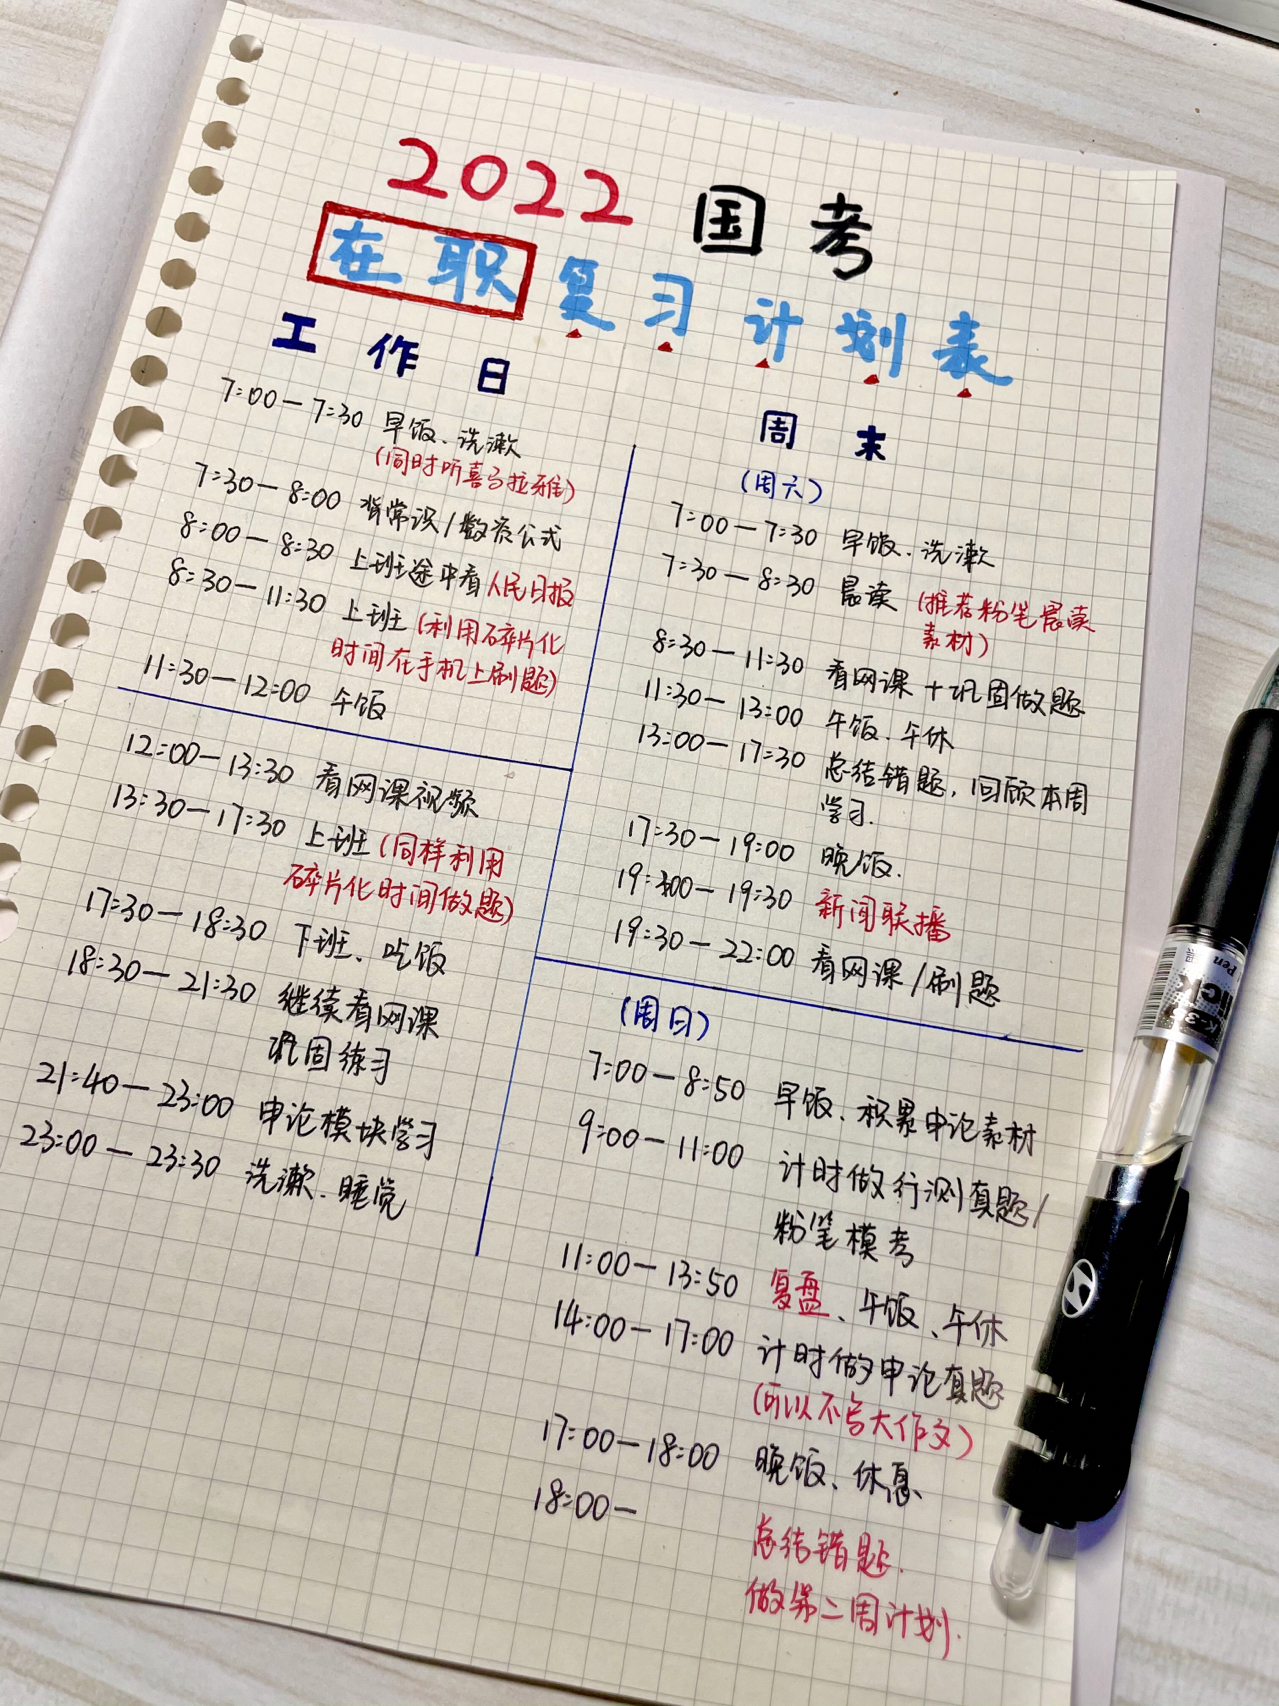 2022 国考
在职复习计划表
工作日
7:00—7:30 早饭、洗漱
(同时听喜马拉雅)
7:30—8:00 背常识/数资公式
8:00—8:30 上班途中看人民日报
8:30—11:30 上班(利用碎片化
时间在手机上刷题)
11:30—12:00 午饭
12:00—13:30 看网课视频
13:30—17:30 上班(同样利用
碎片化时间做题)
17:30—18:30 下班、吃饭
18:30—21:30 继续看网课
巩固练习
21:40—23:00 申论模块学习
23:00—23:30 洗漱、睡觉
周末
(周六)
7:00—7:30 早饭、洗漱
7:30—8:30 晨读 (推荐粉笔晨读
素材)
8:30—11:30 看网课+巩固做题
11:30—13:00 午饭、午休
13:00—17:30 总结错题,回顾本周
学习.
17:30—19:00 晚饭.
19:00—19:30 新闻联播
19:30—22:00 看网课/刷题
(周日)
7:00—8:50 早饭、积累申论素材
9:00—11:00 计时做行测真题/
粉笔模考
11:00—13:50 复盘、午饭、午休
14:00—17:00 计时做申论真题
(可以不写大作文)
17:00—18:00 晚饭、休息
18:00—
总结错题.
做第二周计划.
Pen
K-35